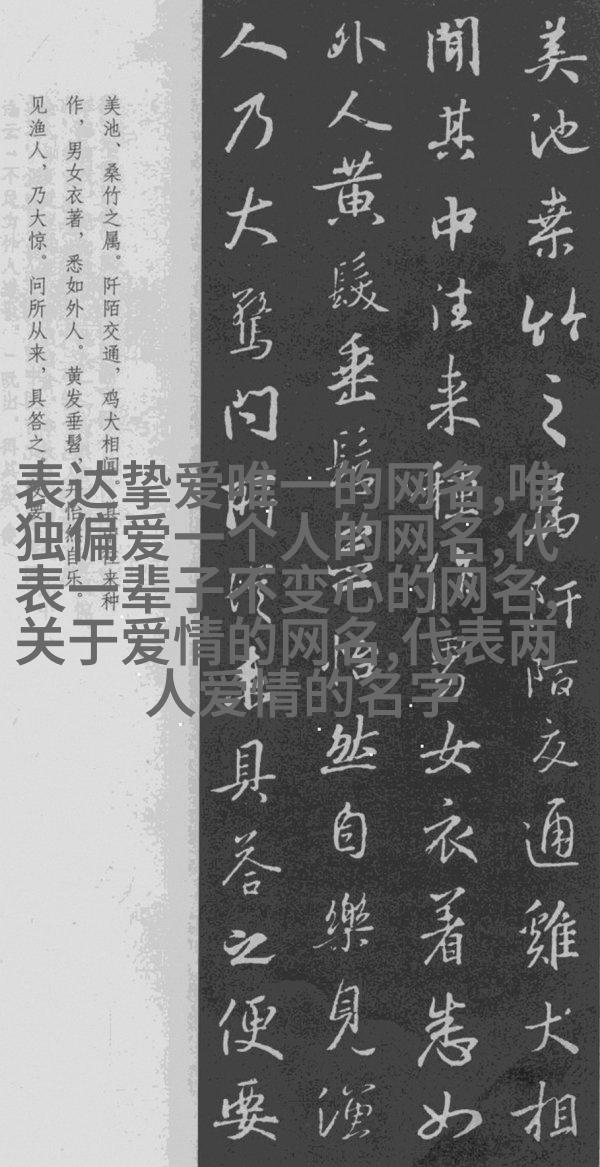 美池桒竹之属阡陌交通雞犬相
聞其中往来種作男女衣着悉如
外人黄髮垂髫並怡然自樂見漁
人乃大驚问所從来具答之便要
美池、桑竹之属。阡陌交通，鸡犬相闻。其中往来种
作，男女衣著，悉如外人。黄发垂髫，并怡然自乐。
见渔人，乃大惊。问所从来，具答之。便要
表达挚爱唯一的网名,唯
独偏爱一个人的网名,代
表一辈子不变心的网名,
关于爱情的网名,代表两
人爱情的名字